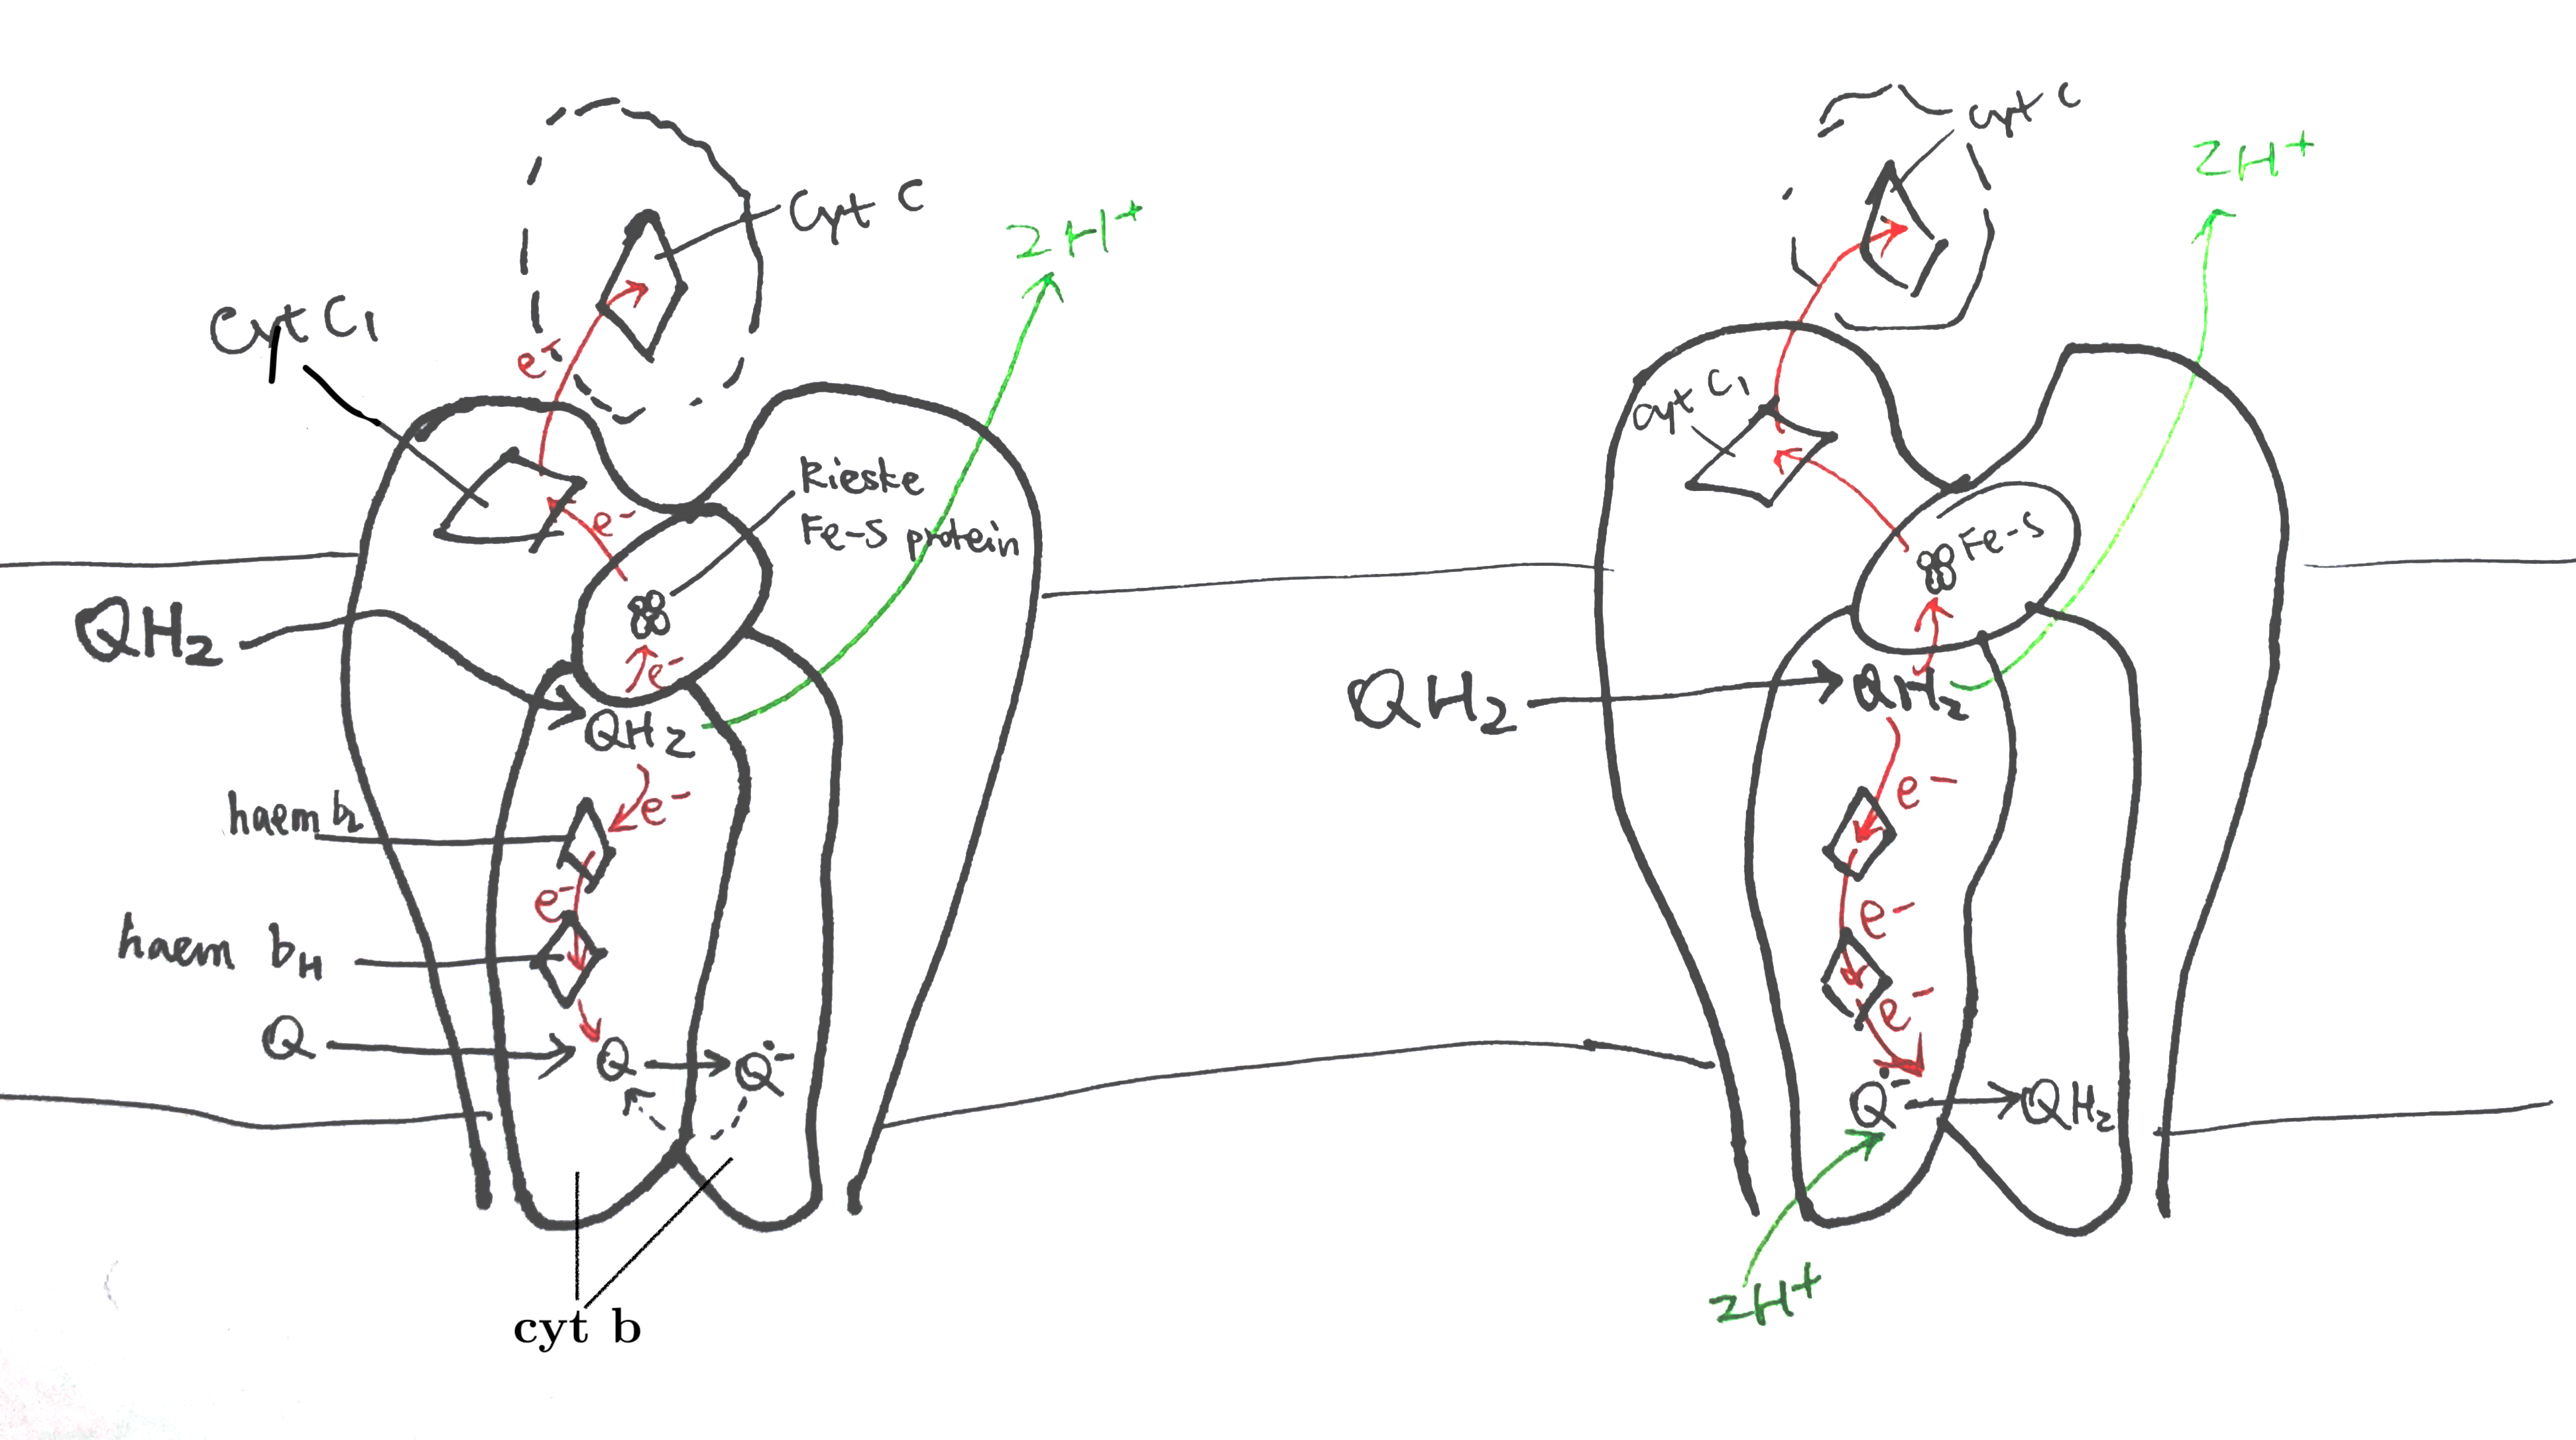 Cyt C
2H⁺
Cyt C₁
e⁻
Rieske
Fe-S protein
e⁻
QH₂
e⁻
QH₂
e⁻
haem b_L
e⁻
haem b_H
Q
Q
Q•⁻
cyt b
cyt C
2H⁺
cyt C₁
Fe-S
QH₂
QH₂
e⁻
e⁻
e⁻
Q•⁻
QH₂
2H⁺